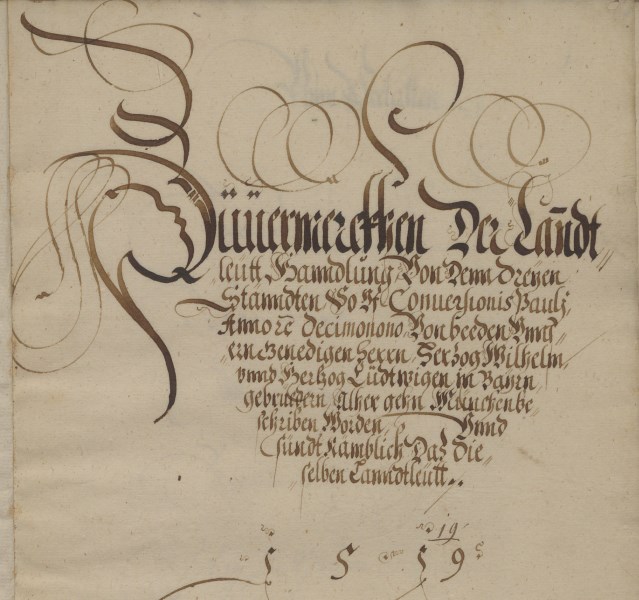 Zuuermerckhen Der Lanndt
leütt Hanndlung Von Denn dreÿen
Stanndten So Vf Conuersionis Paulj
Anno rē decimonono Von beeden Vnns
ern Genedigen herrn Herzog Wilhelm
vnnd Hertzog Ludtwigen in Baÿrn
gebrüedern Alher gehn Münchenbe
schriben Worden Vnnd
sündt Namblich Daß Die
selben Lanndtleütt
19
1 5 1 9